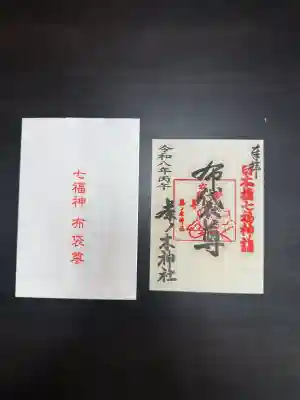 七福神 布袋尊
奉拝
日本橋七福神詣
布袋尊
令和八年丙午
茶ノ木神社